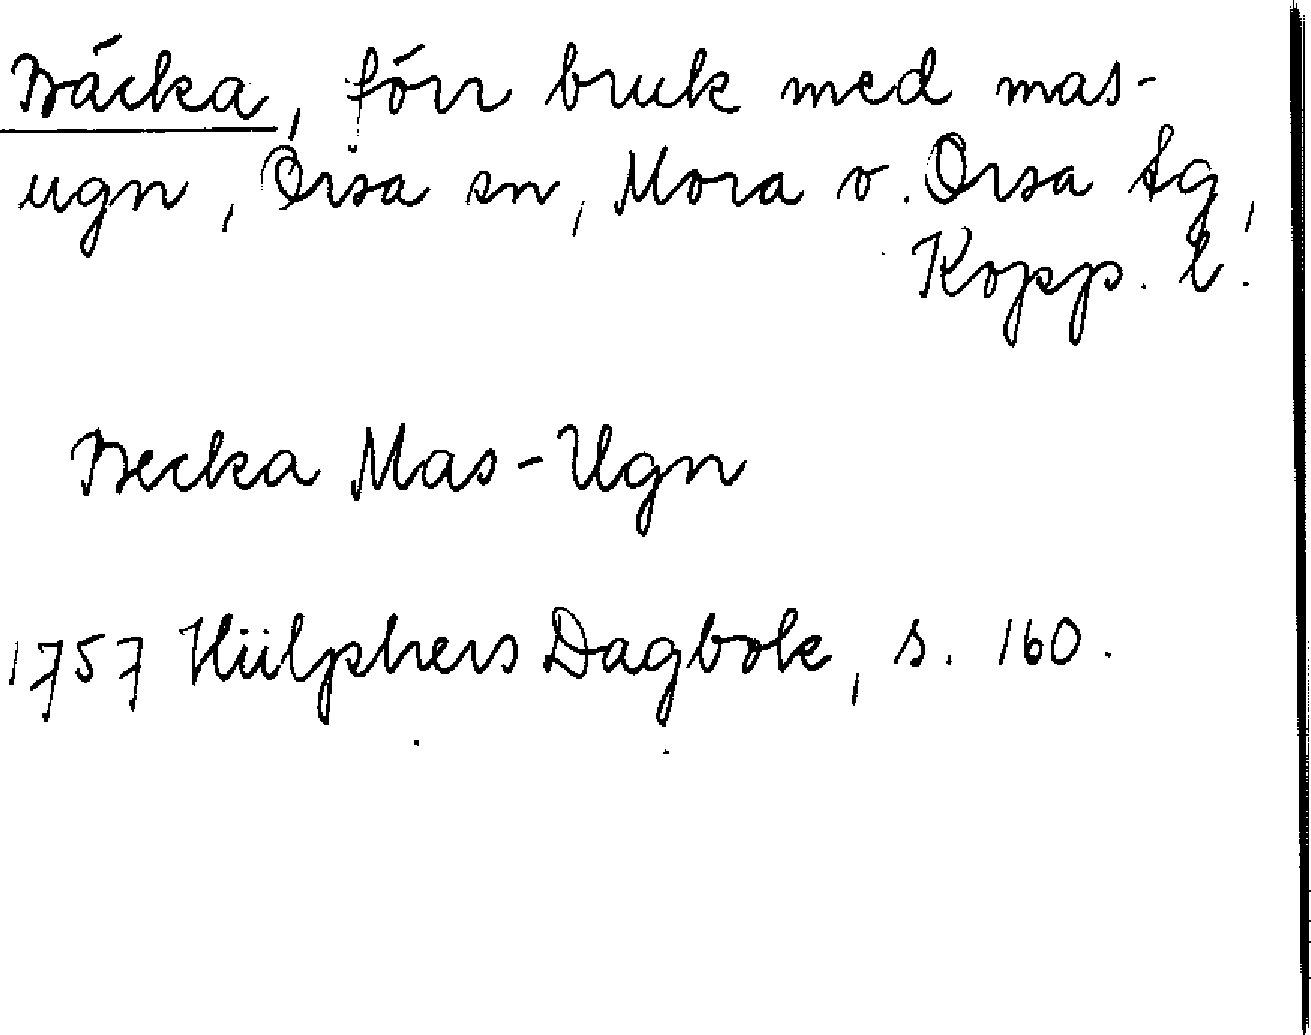 Bäcka, förr bruk med mas-
ugn, Orsa sn, Mora o. Orsa tg,
Kopp. l.
Becka Mas-Ugn
1757 Hülphers Dagbok, s. 160.